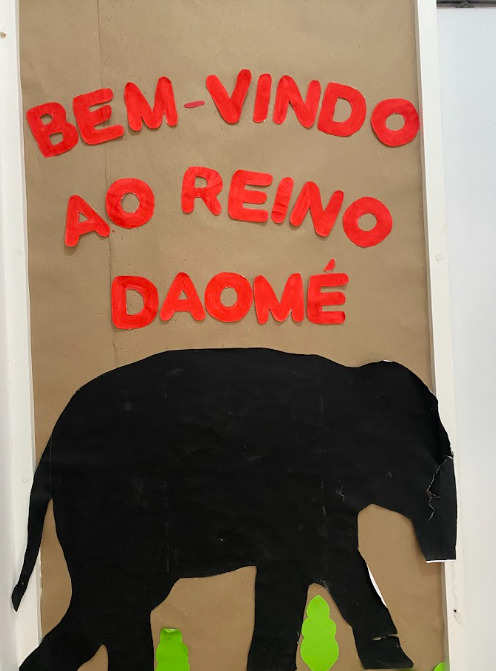 BEM-VINDO
AO REINO
DAOMÉ